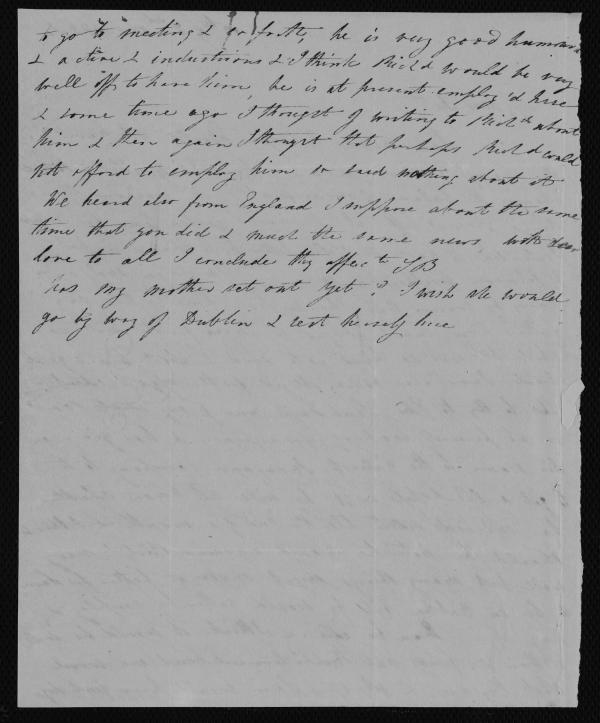 to go to meeting, & so forth, he is very good humour'd
& active & industrious & I think Rich'd would be very
well off to have him, he is at present employ'd here
& some time ago I thought of writing to Rich'd about
him & then again I thought that perhaps Rich'd could
not afford to employ him so said nothing about it
We heard also from England I suppose about the same
time that you did & much the same news, with dear
love to all I conclude thy affec't SB
has my mother set out yet? I wish she would
go by way of Dublin & rest herself here